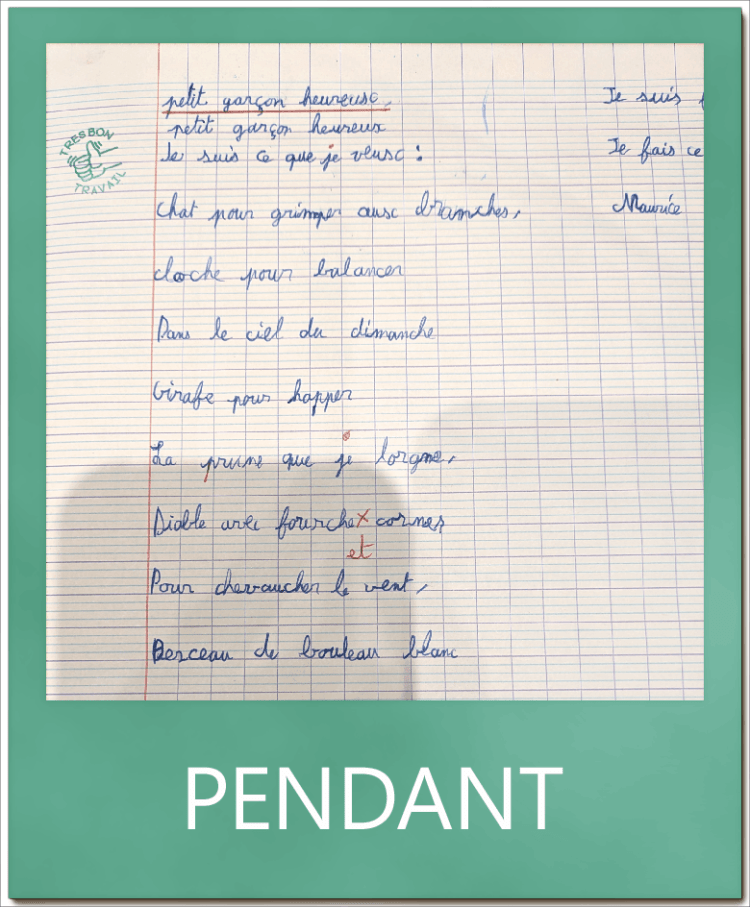 TRES BON TRAVAIL
petit garçon heureux,
petit garçon heureux
Je suis ce que je veux :
Chat pour grimper aux branches,
cloche pour balancer
Dans le ciel du dimanche
Girafe pour happer
La prune que je lorgne,
Diable avec fourche x cornes
et
Pour chevaucher le vent,
Berceau de bouleau blanc
Je suis
Je fais ce
Maurice
PENDANT